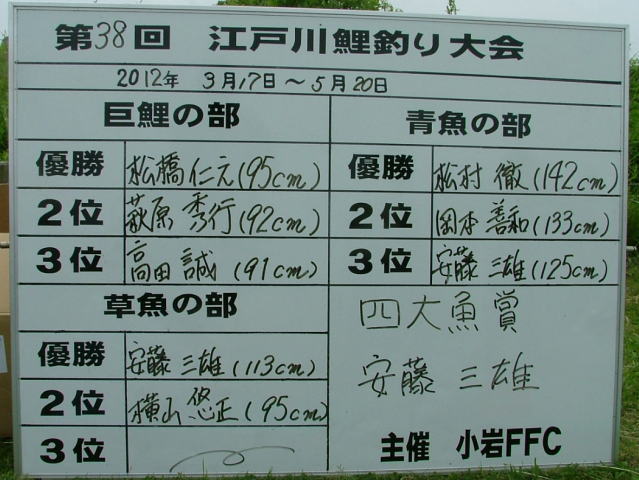 第38回 江戸川鯉釣り大会
2012年 3月17日～5月20日
巨鯉の部
優勝 松橋仁元(95cm)
2位 萩原秀行(92cm)
3位 高田誠(91cm)
青魚の部
優勝 松村徹(142cm)
2位 岡本善和(133cm)
3位 安藤三雄(125cm)
草魚の部
優勝 安藤三雄(113cm)
2位 横山悠正(95cm)
3位
四大魚賞
安藤三雄
主催 小岩FFC